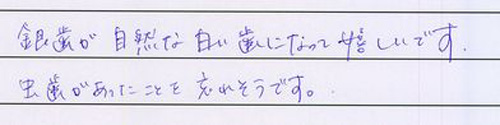 銀歯が自然な白い歯になって嬉しいです.
虫歯があったことを忘れそうです。